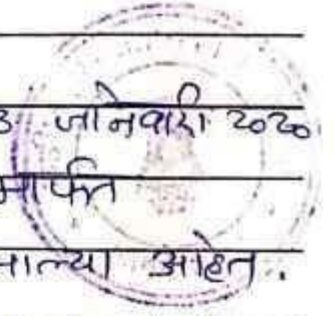 3 जानेवारी २०२०
मार्फत
आहेत.